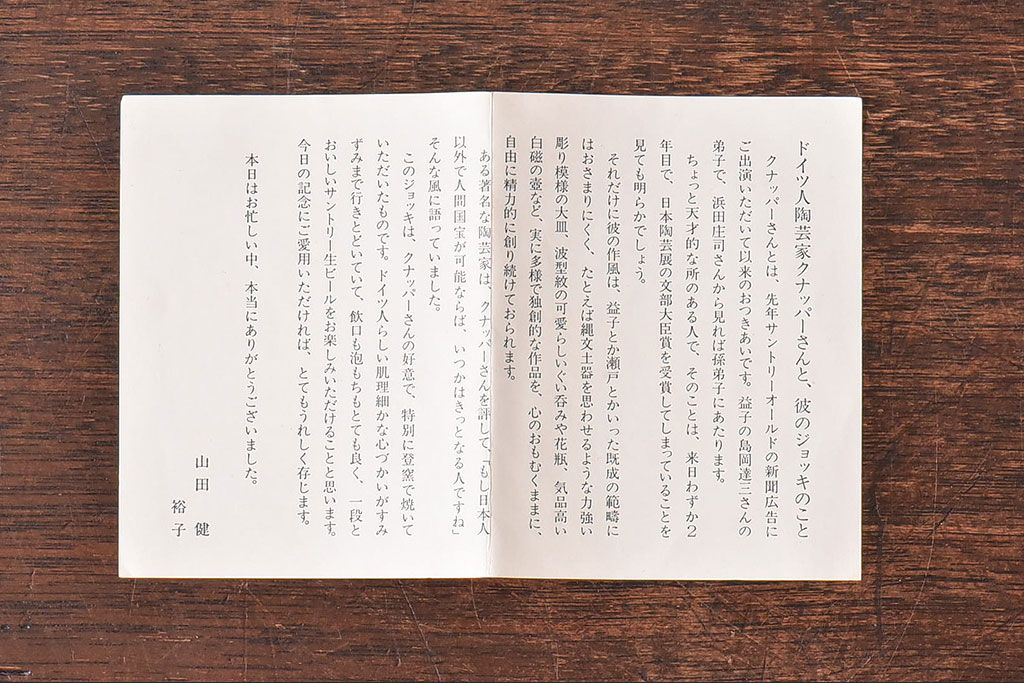 ドイツ人陶芸家クナッパーさんと、彼のジョッキのこと
クナッパーさんとは、先年サントリーオールドの新聞広告に
ご出演いただいて以来のおつきあいです。益子の島岡達三さんの
弟子で、浜田庄司さんから見れば孫弟子にあたります。
ちょっと天才的な所のある人で、そのことは、来日わずか2
年目で、日本陶芸展の文部大臣賞を受賞してしまっていることを
見ても明らかでしょう。
それだけに彼の作風は、益子とか瀬戸とかいった既成の範疇に
はおさまりにくく、たとえば縄文土器を思わせるような力強い
彫り模様の大皿、波型紋の可愛らしいぐい呑みや花瓶、気品高い
白磁の壺など、実に多様で独創的な作品を、心のおもむくままに、
自由に精力的に創り続けておられます。
ある著名な陶芸家は、クナッパーさんを評して、「もし日本人
以外で人間国宝が可能ならば、いつかはきっとなる人ですね」
そんな風に語っていました。
このジョッキは、クナッパーさんの好意で、特別に登窯で焼いて
いただいたものです。ドイツ人らしい肌理細かな心づかいがすみ
ずみまで行きとどいていて、飲口も泡もちもとても良く、一段と
おいしいサントリー生ビールをお楽しみいただけることと思います。
今日の記念にご愛用いただければ、とてもうれしく存じます。
本日はお忙しい中、本当にありがとうございました。
山田 健
裕子